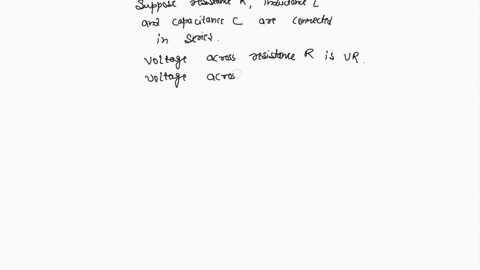 Suppose resistance R, inductance L
and capacitance C are connected
in series.
voltage across resistance R is VR.
voltage acros